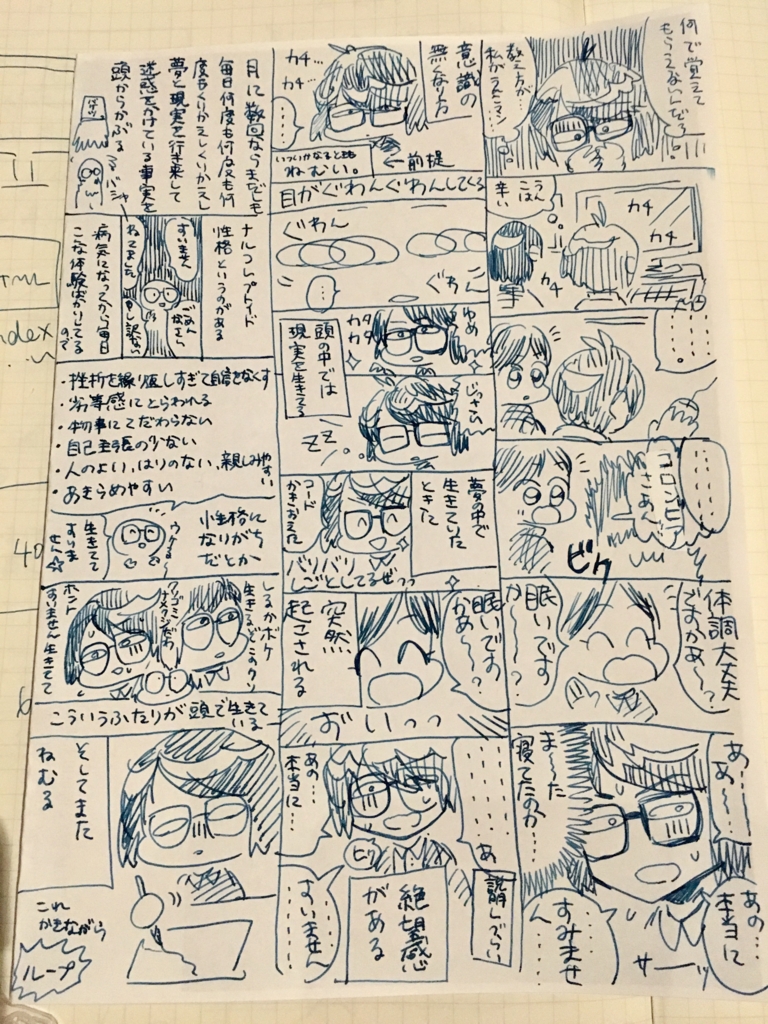 何で覚えて
もらえないんだろ…
教え方が…
私がラスボスマン…
カチ
カチ
……。
体調大丈夫
ですかあ〜?
眠いです
か〜〜?
ビク
あ……
あ〜……
ま〜〜た
寝てたのか…
あの…
本当に
すみませ
ん…
サーッ
意識の
無くなり方
カチ…
カチ…
いついかなるときも
ねむい。
←前提
目がぐわんぐわんしてくる
ぐわん
ぐわん
ゆめ
カタ
カタ
頭の中では
現実を生きてる
じっさい
ZZ…
夢の中で
生きていた
ときた
コード
かきおえた
バリバリ
しごとしてるぜっっ
眠いです
かあ〜?
突然
起こされる
おいっっ
あ
あの…
本当に…
ヒクッ
説明しづらい
絶望感
がある
すいません
……
月に数回ならまだしも
毎日何度も何度も何
度もくりかえしくりかえし
夢と現実を行き来して
迷惑をかけている事実を
頭からかぶる
バシャー
ナルコレプトイド
性格というのがある
すいません
ねてました
ごめん
なさい
申し訳ない
病気になってから毎日
こんな体験ばかりしてる
ので
・挫折を繰り返しすぎて自信をなくす
・劣等感にとらわれる
・物事にこだわらない
・自己主張の少ない
・人のよい、はりのない、親しみやすい
・あきらめやすい
性格に
なりがち
だとか
ウケる〜
生きてて
すいま
せん☆
しるかボケ
生きるどこのクソ
ホント
すいません生きてて
こういうふたりが頭で生きて
いる
そしてまた
ねむる
これ
かきながら
ループ